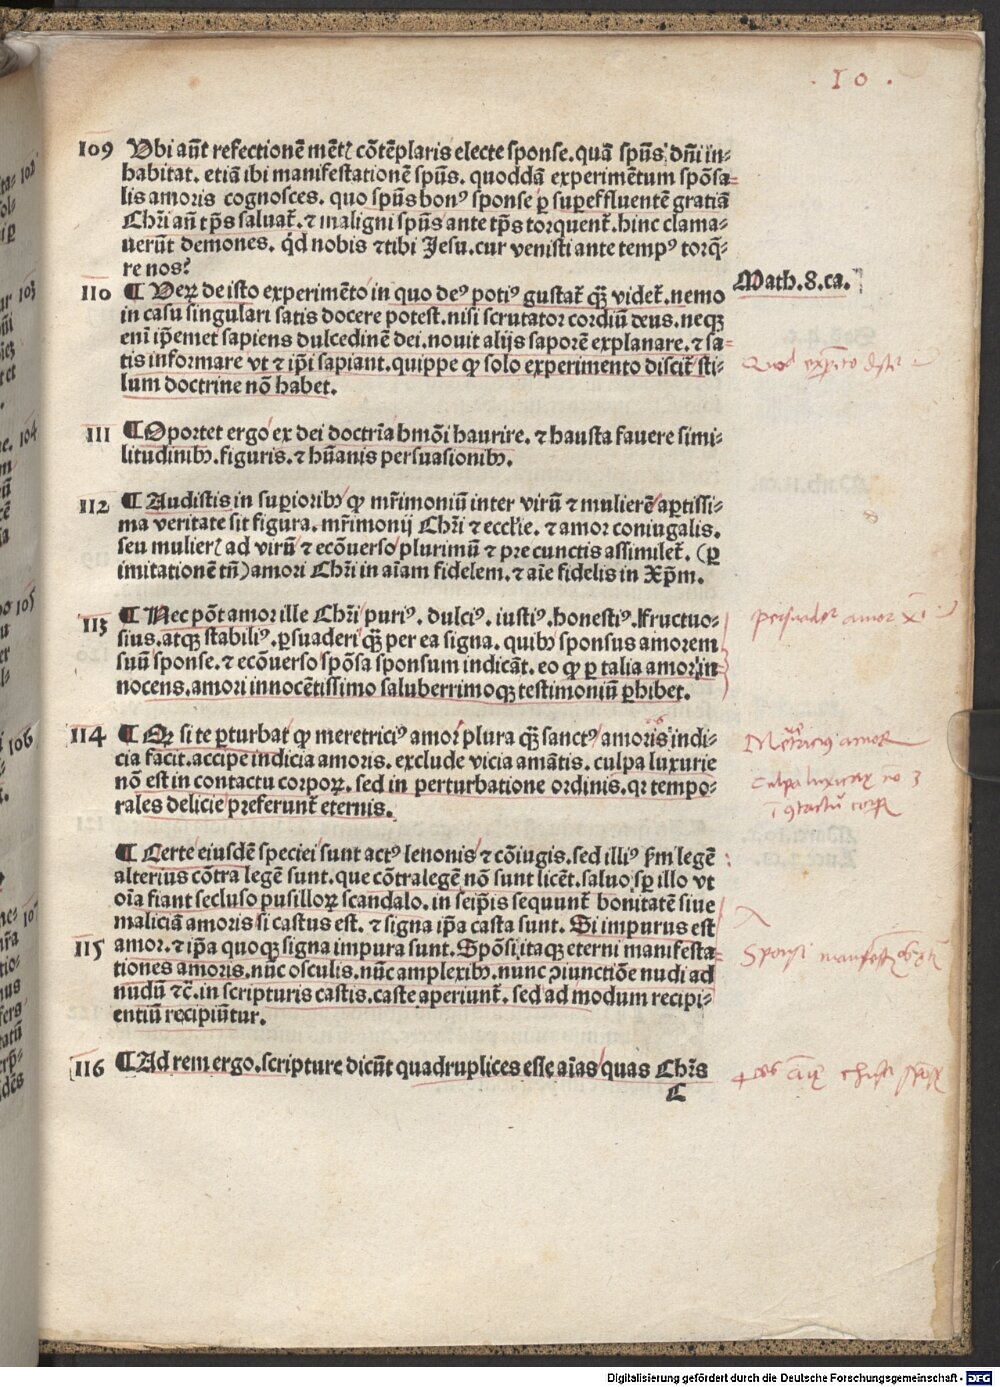 . 10 .
109 Vbi aūt refectionē mētꝭ cōtēplaris electe sponse. quā spūs dn̄i in⸗
habitat. etiā ibi manifestationē spūs. quoddā experimētum spōsa⸗
lis amoris cognosces. quo spūs bonꝰ sponse ꝑ suꝑeffluentē gratiā
Chr̄i añ tp̄s saluat̄. ⁊ maligni spūs ante tp̄s torquent̄. hinc clama⸗
uerūt demones. qd̄ nobis ⁊ tibi Jesu. cur venisti ante tempꝰ torq̄⸗
re nos?
Math. 8. ca.
110 ¶ Veꝝ de isto experimēto in quo deꝰ potiꝰ gustat̄ qꝫ̄ videt̄. nemo
in casu singulari satis docere potest. nisi scrutator cordiū deus. neqꝫ
eni īpemet sapiens dulcedinē dei. nouit alijs saporē explanare. ⁊ sa⸗
tis informare vt ⁊ ip̄i sapiant. quippe ꝙ solo experimento discit̄ sti⸗
lum doctrine nō habet.
111 ¶ Oportet ergo ex dei doctrīa hmōi haurire. ⁊ hausta fauere simi⸗
litudinibꝫ. figuris. ⁊ hūanis persuasionibꝫ.
112 ¶ Audistis in suꝑioribꝫ ꝙ mr̄imoniū inter virū ⁊ mulierē aꝑtissi⸗
ma veritate sit figura. mr̄imonij Chr̄i ⁊ eccl̄ie. ⁊ amor coniugalis.
seu mulierꝭ ad virū ⁊ ecōuerso plurimū ⁊ pre cunctis assimilet̄. (ꝑ
imitationē tn̄) amori Chr̄i in aīam fidelem. ⁊ aīe fidelis in Xp̄m.
113 ¶ Nec pōt amor ille Chr̄i puriꝰ. dulciꝰ. iustiꝰ. honestiꝰ. ⁊ fructuo⸗
sius. atqꝫ stabiliꝰ. ꝑsuaderi qꝫ̄ per ea signa. quibꝫ sponsus amorem
suū sponse. ⁊ ecōuerso spōsa sponsum indicāt. eo ꝙ ꝑ talia amor in
nocens. amori innocētissimo saluberrimoqꝫ testimoniū ꝑhibet.
114 ¶ Qꝝ si te ꝑturbat ꝙ meretriciꝰ amor plura qꝫ̄ sanctꝰ amoris indi⸗
cia facit. accipe indicia amoris. exclude vicia amātis. culpa luxurie
nō est in contactu corpoꝝ. sed in perturbatione ordinis. qr tempo⸗
rales delicie preferunt̄ eternis.
Meretricius amor
¶ Certe eiusdē speciei sunt actꝰ lenonis ⁊ cōiugis. sed illiꝰ ꝑm legē
alterius cōtra legē sunt. que cōtra legē nō sunt licēt. saluo sꝑ illo vt
oīa fiant secluso pusilloꝝ scandalo. in seip̄is sequunt̄ bonitatē siue
maliciā amoris si castus est. ⁊ signa ip̄a casta sunt. Si impurus est
115 amor. ⁊ ip̄a quoqꝫ signa impura sunt. Spōsi itaqꝫ eterni manifesta⸗
tiones amoris. nūc osculis. nūc amplexibꝫ. nunc ꝯiunctiōe nudi ad
nudū ⁊c̄. in scripturis castis. caste aperiunt̄. sed ad modum recipi⸗
entiū recipiūtur.
116 ¶ Ad rem ergo. scripture dicūt quadruplices esse aīas quas Chr̄s
C
Digitalisierung gefördert durch die Deutsche Forschungsgemeinschaft - DFG